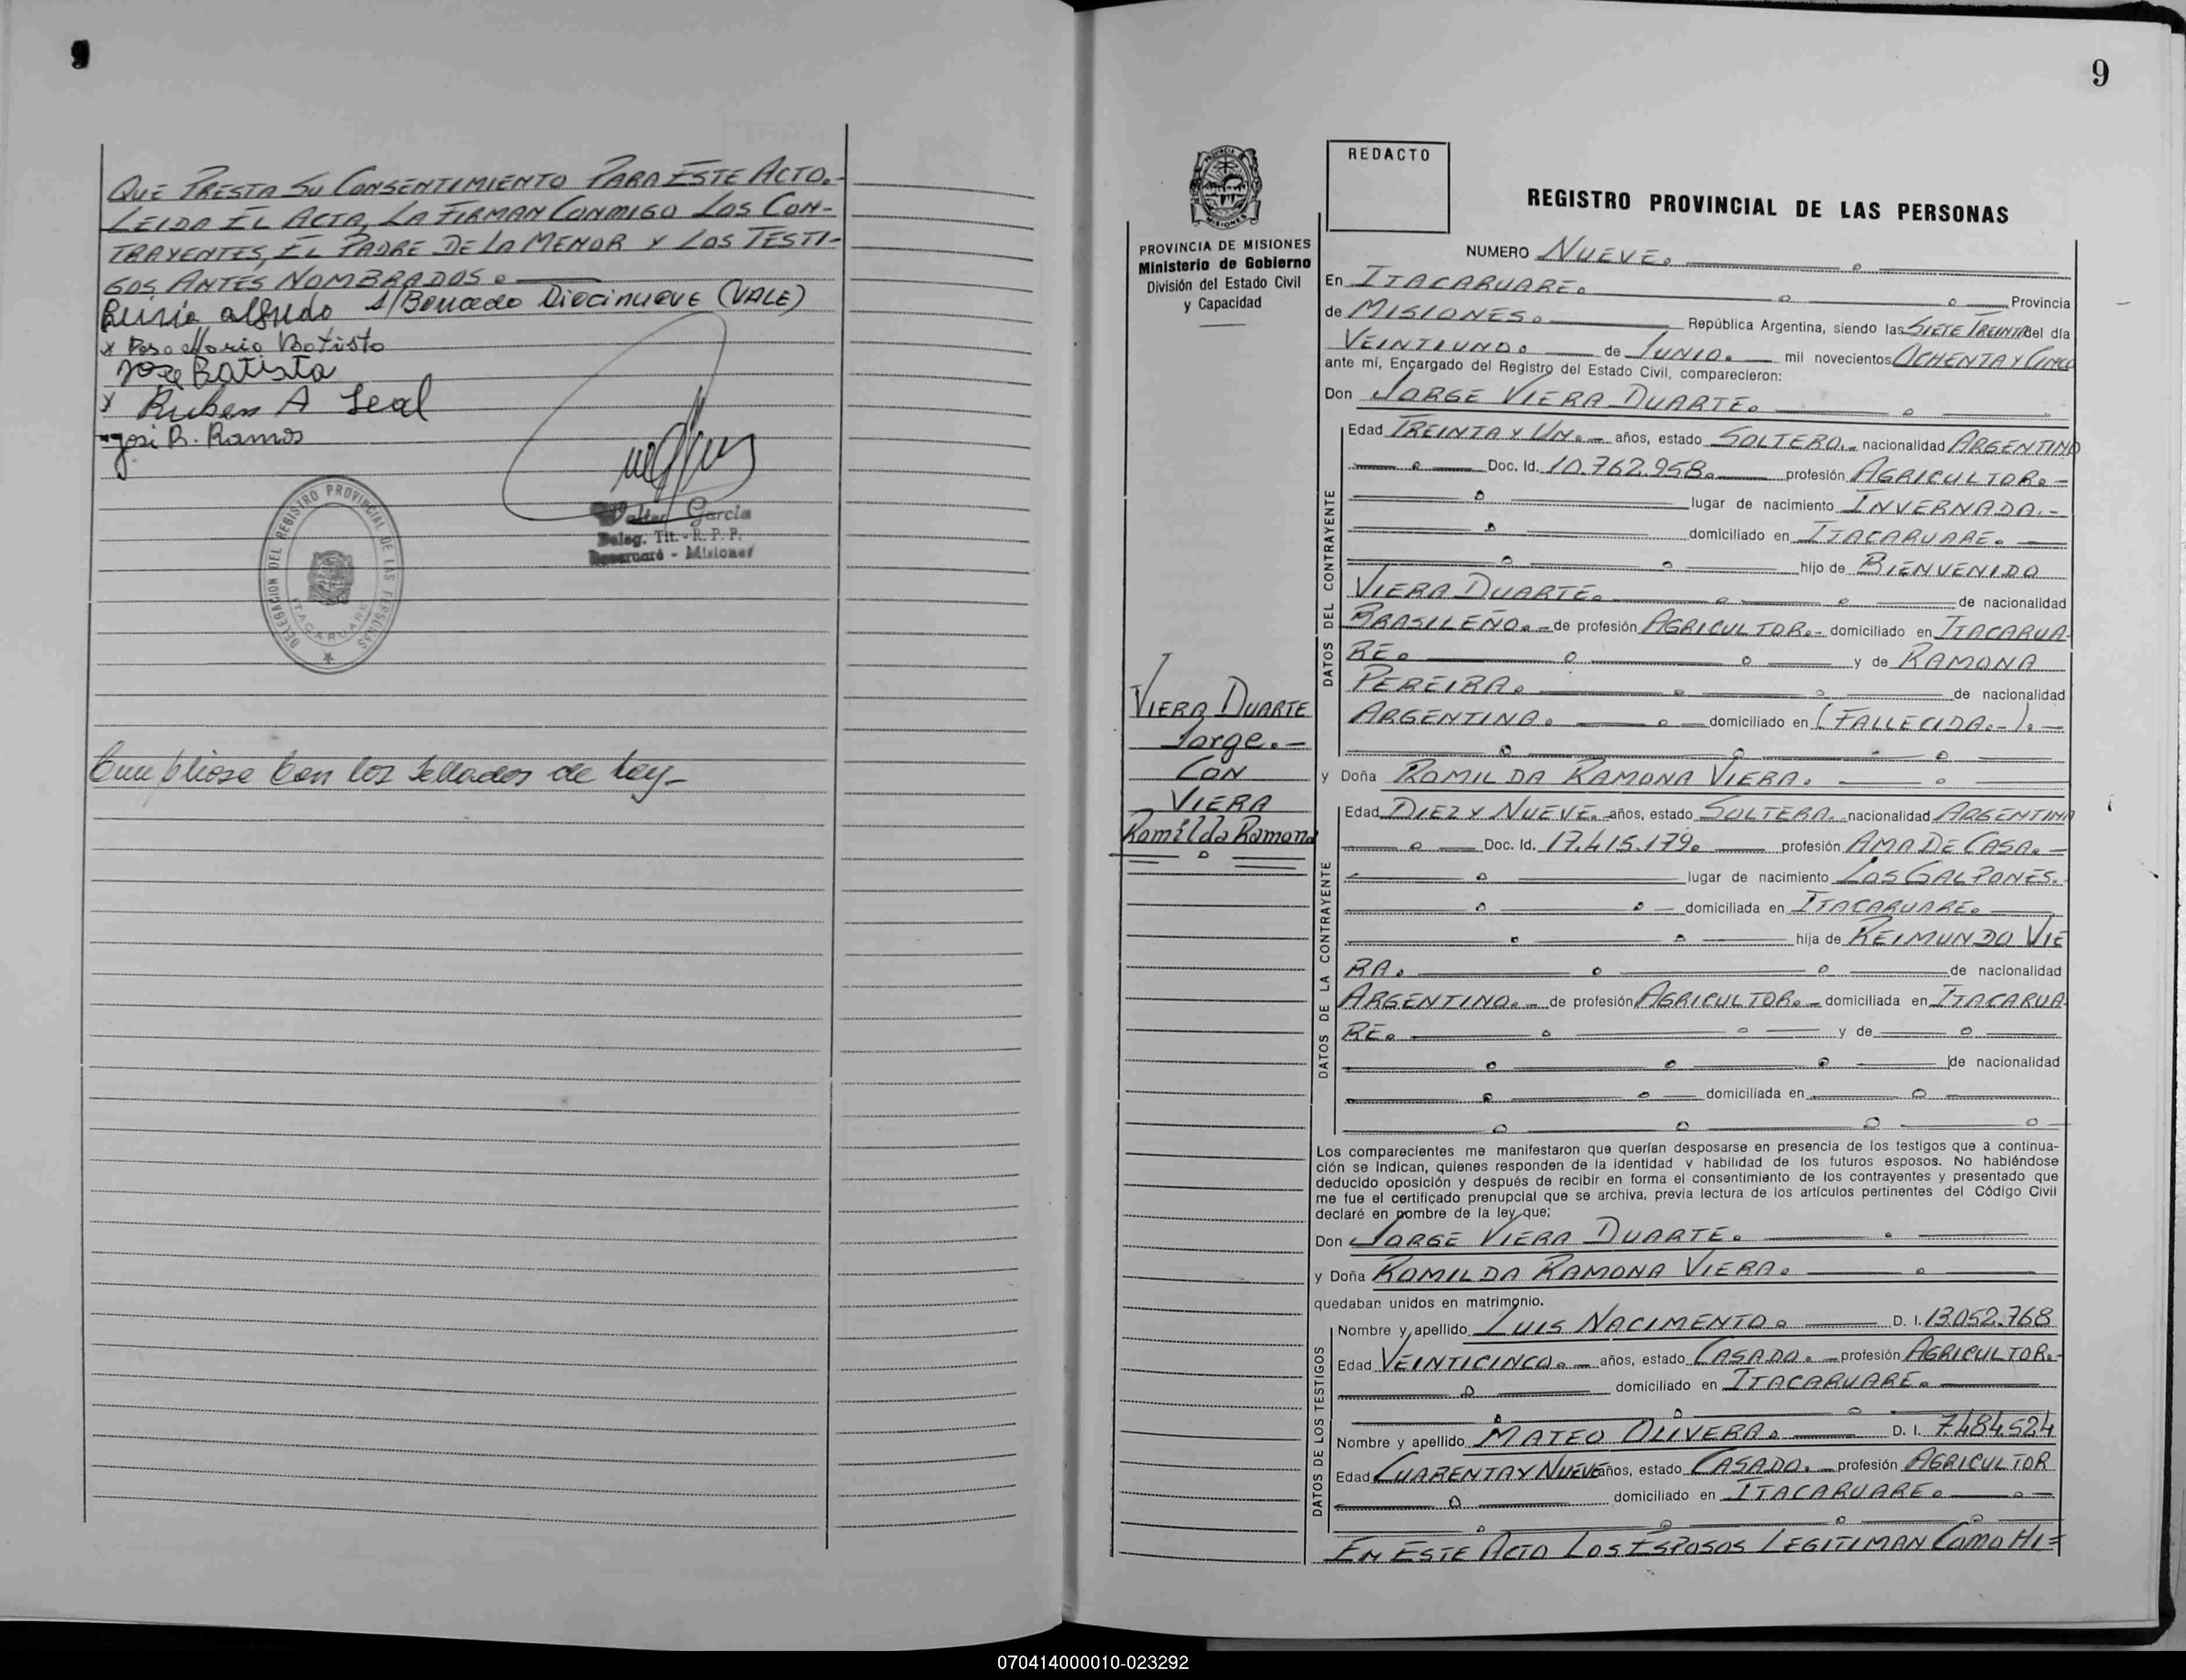 QUE PRESTA SU CONSENTIMIENTO PARA ESTE ACTO.-
LEIDA EL ACTA, LA FIRMAN CONMIGO LOS CON-
TRAYENTES, EL PADRE DE LA MENOR Y LOS TESTI-
GOS ANTES NOMBRADOS.
alfredo S/Borrado Diecinueve (VALE)
x Rosa Maria Batista
Jose Batista
x Ruben A Leal
Jose R. Ramos
DELEGACION DEL REGISTRO PROVINCIAL DE LAS PERSONAS
ITACARUARE
Walter Garcia
Deleg. Tit. - R. P. P.
Itacaruaré - Misiones
Cumpliose Con los Sellados de Ley-
9
PROVINCIA DE MISIONES
Ministerio de Gobierno
División del Estado Civil
y Capacidad
VIERA DUARTE
Jorge.-
CON
VIERA
Romilda Ramona
REDACTO
REGISTRO PROVINCIAL DE LAS PERSONAS
NUMERO NUEVE.
En ITACARUARE. Provincia
de MISIONES. República Argentina, siendo las SIETE TREINTA del día
VEINTIUNO. de JUNIO. mil novecientos OCHENTA Y CINCO
ante mí, Encargado del Registro del Estado Civil, comparecieron:
Don JORGE VIERA DUARTE.
DATOS DEL CONTRAYENTE
Edad TREINTA Y UN.- años, estado SOLTERO.- nacionalidad ARGENTINO
Doc. Id. 10.762.958. profesión AGRICULTOR.-
lugar de nacimiento INVERNADA.-
domiciliado en ITACARUARE.
hijo de BIENVENIDO
VIERA DUARTE. de nacionalidad
BRASILEÑO.- de profesión AGRICULTOR.- domiciliado en ITACARUA-
RE. y de RAMONA
PEREIRA. de nacionalidad
ARGENTINA. domiciliado en (FALLECIDA.-).-
y Doña ROMILDA RAMONA VIERA.
DATOS DE LA CONTRAYENTE
Edad DIEZ Y NUEVE.- años, estado SOLTERA. nacionalidad ARGENTINA
Doc. Id. 17.415.179. profesión AMA DE CASA.-
lugar de nacimiento LOS GALPONES.
domiciliada en ITACARUARE.
hija de REIMUNDO VIE
RA. de nacionalidad
ARGENTINO.- de profesión AGRICULTOR.- domiciliada en ITACARUA-
RE. y de
de nacionalidad
domiciliada en
Los comparecientes me manifestaron que querían desposarse en presencia de los testigos que a continua-
ción se indican, quienes responden de la identidad y habilidad de los futuros esposos. No habiéndose
deducido oposición y después de recibir en forma el consentimiento de los contrayentes y presentado que
me fue el certificado prenupcial que se archiva, previa lectura de los artículos pertinentes del Código Civil
declaré en nombre de la ley que;
Don JORGE VIERA DUARTE.
y Doña ROMILDA RAMONA VIERA.
quedaban unidos en matrimonio.
DATOS DE LOS TESTIGOS
Nombre y apellido LUIS NACIMENTO. D. I. 13.052.768
Edad VEINTICINCO.- años, estado CASADO.- profesión AGRICULTOR.-
domiciliado en ITACARUARE.
Nombre y apellido MATEO OLIVERA. D. I. 7.484.524
Edad CUARENTA Y NUEVE años, estado CASADO.- profesión AGRICULTOR
domiciliado en ITACARUARE.
EN ESTE ACTO LOS ESPOSOS LEGITIMAN COMO HI=
070414000010-023292